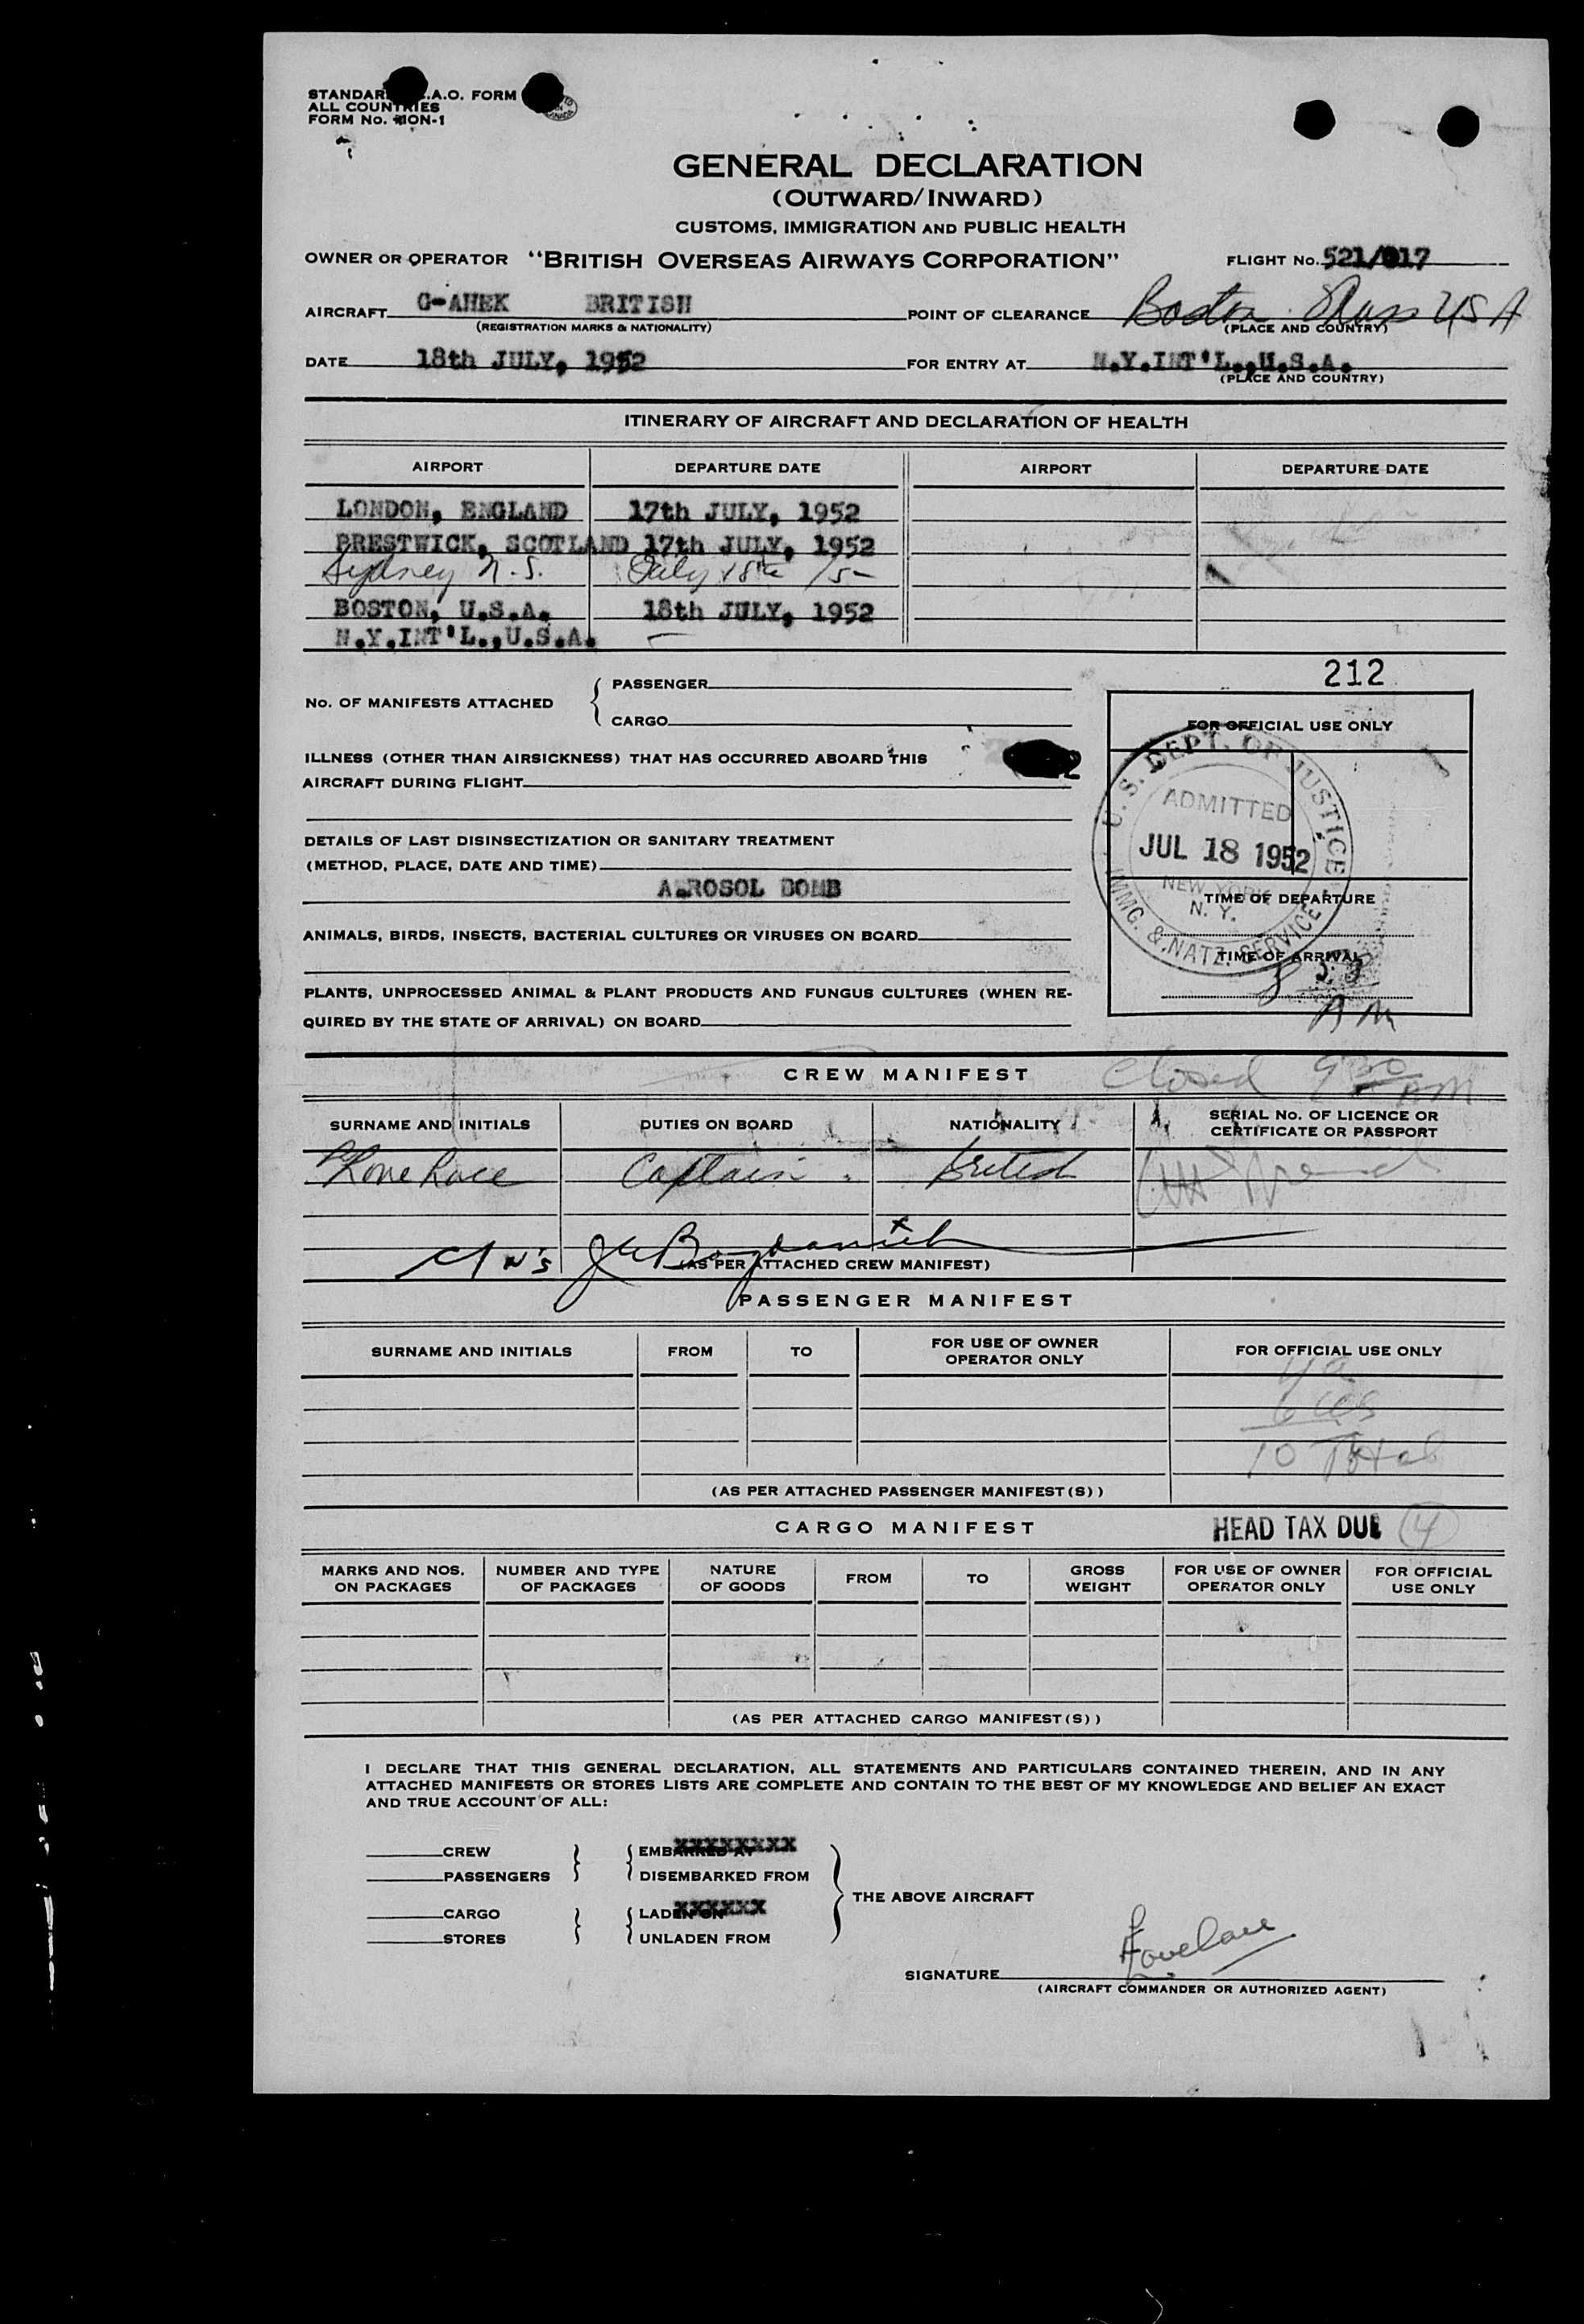 STANDARD .A.O. FORM
ALL COUNTRIES
FORM No. ION-1
GENERAL DECLARATION
(OUTWARD/INWARD)
CUSTOMS, IMMIGRATION AND PUBLIC HEALTH
OWNER OR OPERATOR "BRITISH OVERSEAS AIRWAYS CORPORATION" FLIGHT No. 521/017
AIRCRAFT G-AHEK BRITISH POINT OF CLEARANCE Boston Mass USA
(REGISTRATION MARKS & NATIONALITY) (PLACE AND COUNTRY)
DATE 18th JULY, 1952 FOR ENTRY AT N.Y.INT'L.,U.S.A.
(PLACE AND COUNTRY)
ITINERARY OF AIRCRAFT AND DECLARATION OF HEALTH
AIRPORT DEPARTURE DATE AIRPORT DEPARTURE DATE
LONDON, ENGLAND 17th JULY, 1952
PRESTWICK, SCOTLAND 17th JULY, 1952
Sydney N.S. July 18th /5
BOSTON, U.S.A. 18th JULY, 1952
N.Y.INT'L.,U.S.A. —
212
No. OF MANIFESTS ATTACHED { PASSENGER
CARGO
FOR OFFICIAL USE ONLY
ILLNESS (OTHER THAN AIRSICKNESS) THAT HAS OCCURRED ABOARD THIS
AIRCRAFT DURING FLIGHT
U.S. DEPT. OF JUSTICE
ADMITTED
JUL 18 1952
NEW YORK
N. Y.
IMMG. & NATZ. SERVICE
DETAILS OF LAST DISINSECTIZATION OR SANITARY TREATMENT
(METHOD, PLACE, DATE AND TIME)
AEROSOL BOMB
TIME OF DEPARTURE
ANIMALS, BIRDS, INSECTS, BACTERIAL CULTURES OR VIRUSES ON BOARD
TIME OF ARRIVAL
8 23
AM
PLANTS, UNPROCESSED ANIMAL & PLANT PRODUCTS AND FUNGUS CULTURES (WHEN RE-
QUIRED BY THE STATE OF ARRIVAL) ON BOARD
CREW MANIFEST Closed 9 30 AM
SURNAME AND INITIALS DUTIES ON BOARD NATIONALITY SERIAL No. OF LICENCE OR
CERTIFICATE OR PASSPORT
Lovelace Captain British
(AS PER ATTACHED CREW MANIFEST)
PASSENGER MANIFEST
SURNAME AND INITIALS FROM TO FOR USE OF OWNER
OPERATOR ONLY FOR OFFICIAL USE ONLY
4 a
6 USS
10 Total
(AS PER ATTACHED PASSENGER MANIFEST(S))
CARGO MANIFEST HEAD TAX DUE 4
MARKS AND NOS. ON PACKAGES NUMBER AND TYPE OF PACKAGES NATURE OF GOODS FROM TO GROSS WEIGHT FOR USE OF OWNER OPERATOR ONLY FOR OFFICIAL USE ONLY
(AS PER ATTACHED CARGO MANIFEST(S))
I DECLARE THAT THIS GENERAL DECLARATION, ALL STATEMENTS AND PARTICULARS CONTAINED THEREIN, AND IN ANY
ATTACHED MANIFESTS OR STORES LISTS ARE COMPLETE AND CONTAIN TO THE BEST OF MY KNOWLEDGE AND BELIEF AN EXACT
AND TRUE ACCOUNT OF ALL:
CREW EMBARKED AT XXXXXXXX
PASSENGERS DISEMBARKED FROM
THE ABOVE AIRCRAFT
CARGO LADEN ON XXXXXX
STORES UNLADEN FROM
SIGNATURE Lovelace
(AIRCRAFT COMMANDER OR AUTHORIZED AGENT)